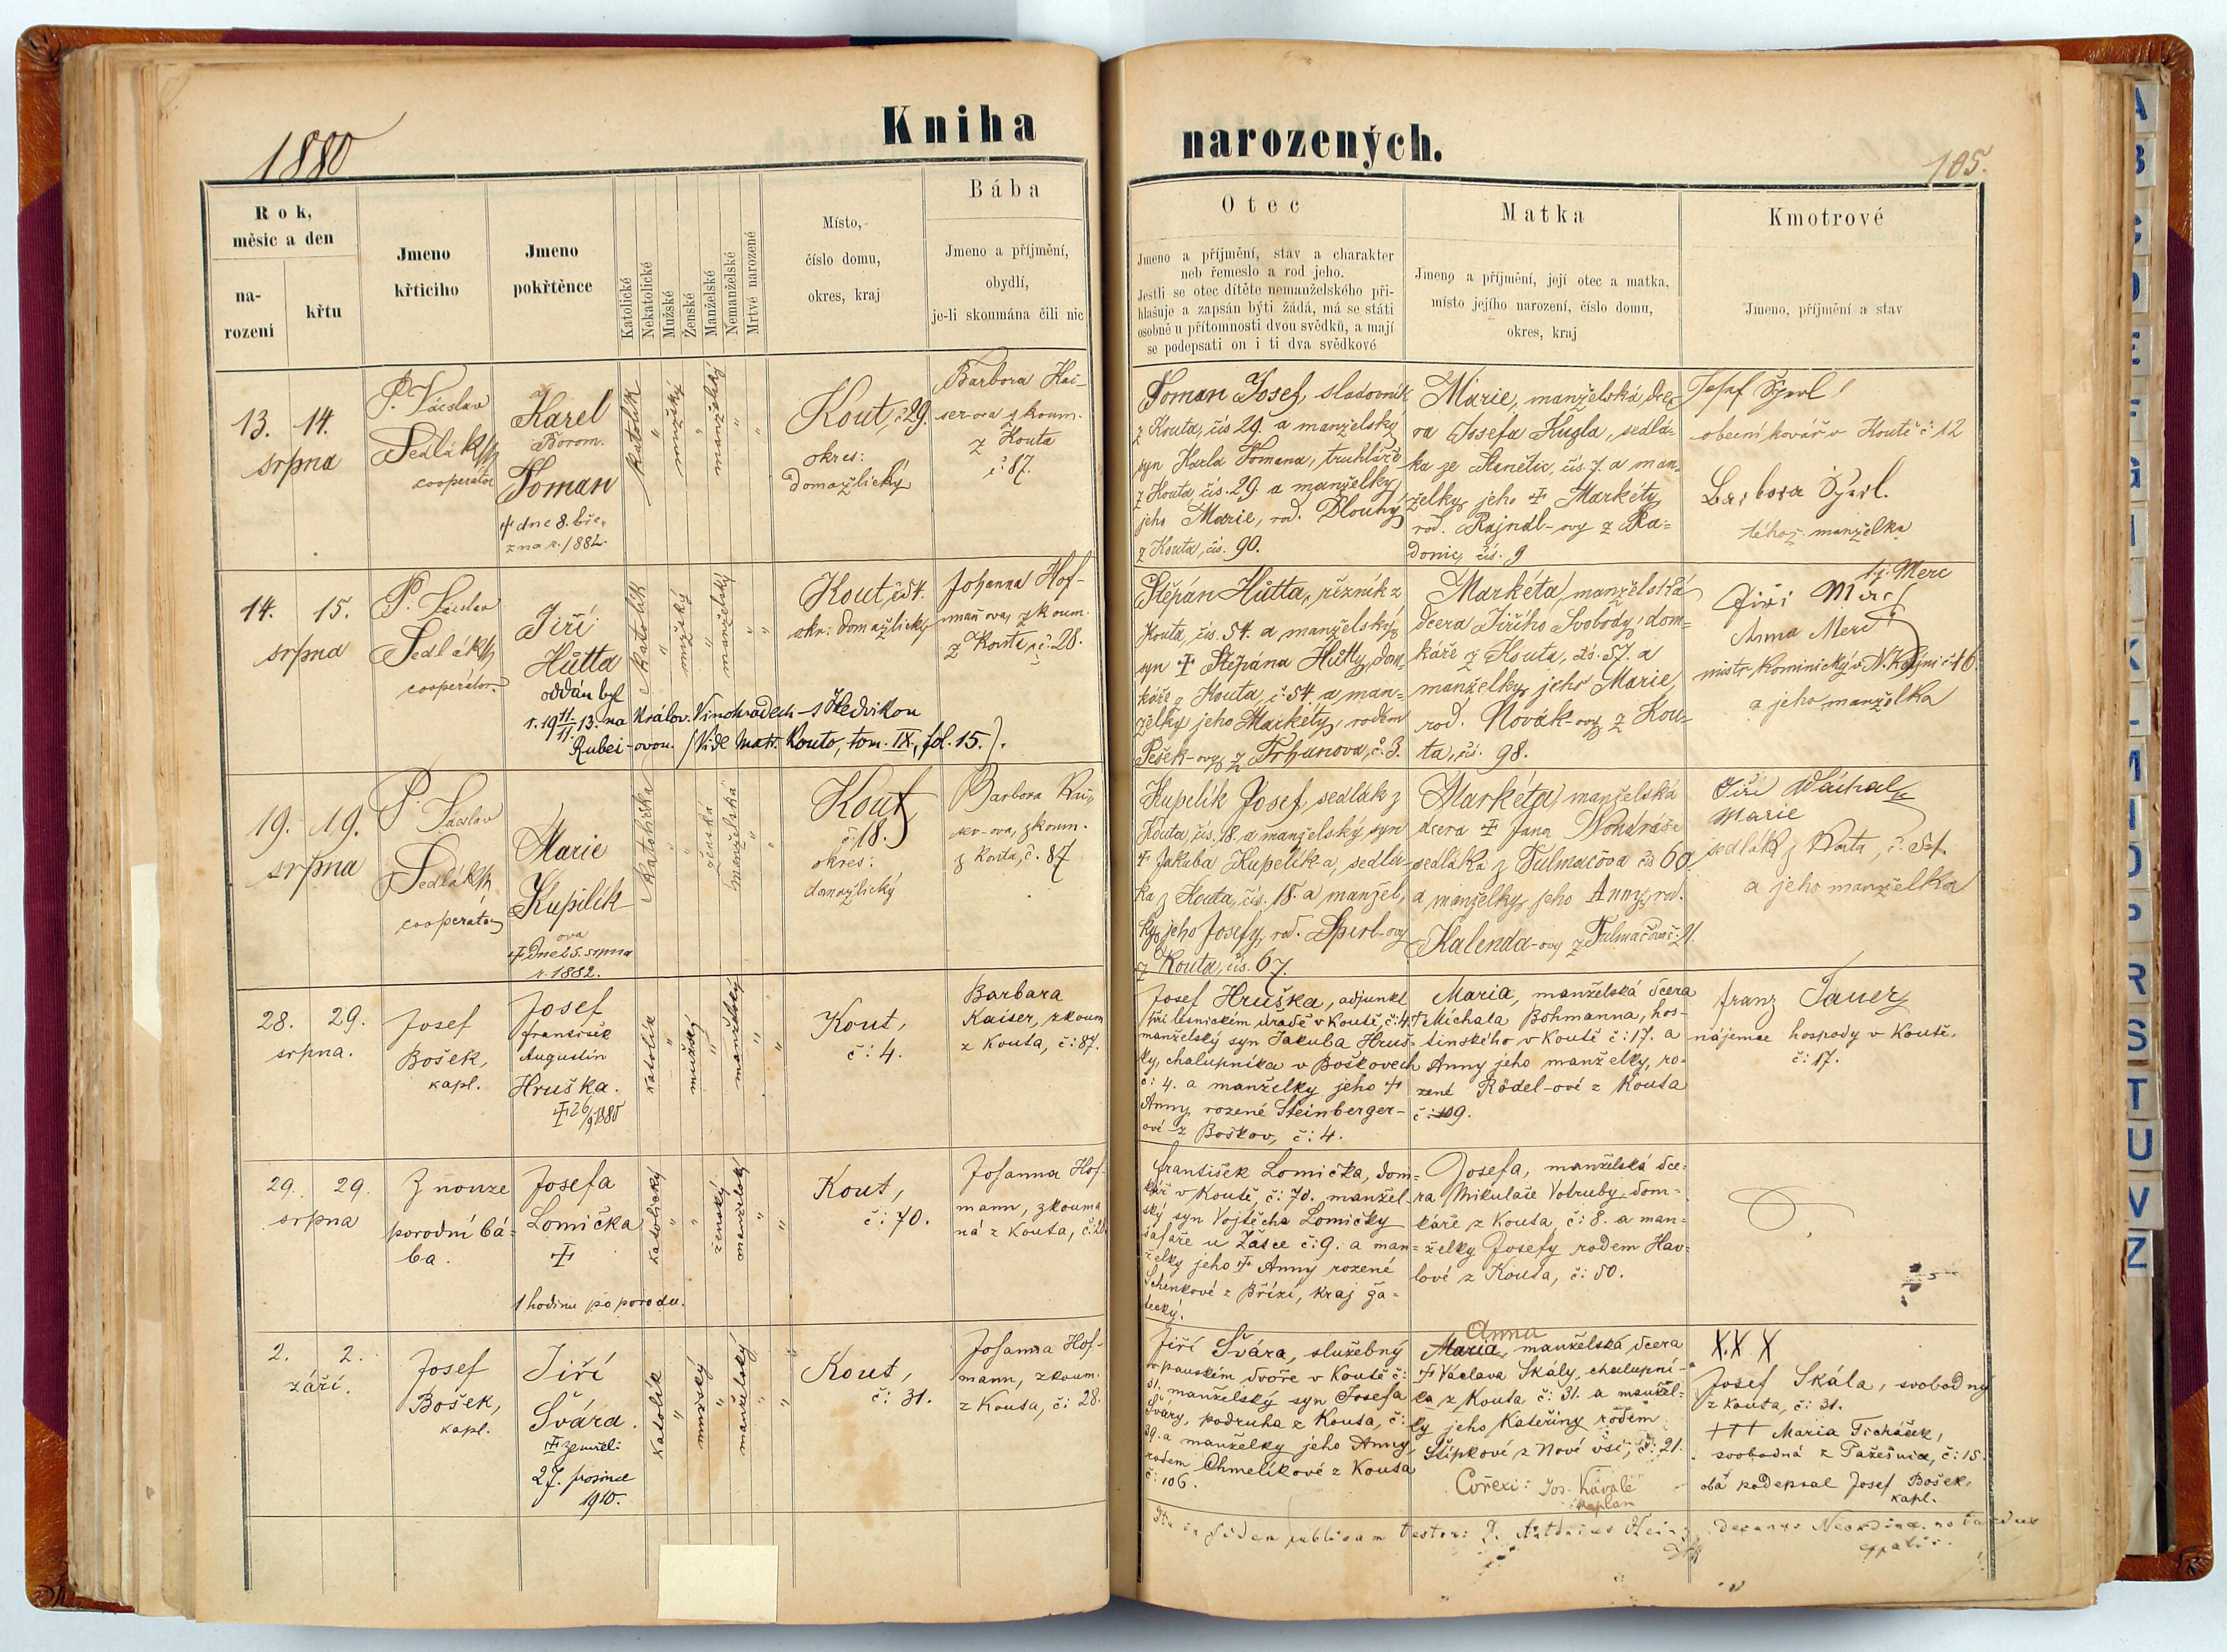 1880
Kniha
narozených.
105.
Rok,
měsíc a den
na-
rození
křtu
Jmeno
křtícího
Jmeno
pokřtěnce
Katolické
Nekatolické
Mužské
Ženské
Manželské
Nemanželské
Mrtvé narozené
Místo,
číslo domu,
okres, kraj
Bába
Jmeno a příjmění,
obydlí,
je-li skoumána čili nic
Otec
Jmeno a příjmění, stav a charakter
neb řemeslo a rod jeho.
Jestli se otec dítěte nemanželského při-
hlašuje a zapsán býti žádá, má se státi
osobně u přítomnosti dvou svědků, a mají
se podepsati on i ti dva svědkové
Matka
Jmeno a příjmění, její otec a matka,
místo jejího narození, číslo domu,
okres, kraj
Kmotrové
Jmeno, příjmění a stav
13. 14.
srpna
P. Václav
Sedlák
cooperátor
Karel
Borom.
Toman
† dne 8. bře-
zna r. 1882.
katolík
"
mužský
"
manželský
"
"
Kout, č 29.
okres:
domažlický
Barbora Kai-
ser-ova zkoum.
z Kouta
č: 87.
Toman Josef, sladovník
z Kouta, čís 29. a manželský
syn Karla Tomana, truhláře
z Kouta, čís. 29. a manželky
jeho Marie, rod. Dlouhý
z Kouta, čís. 90.
Marie, manželská dce-
ra Josefa Kugla, sedlá-
ka ze čís. 7. a man-
želky jeho † Markéty
rod. Rajndl-ovy z Ra-
donic, čís. 9
Josef Šperl
obecní kovář v Koutě č 12
Barbora Šperl.
téhož manželka
14. 15.
srpna
P. Václav
Sedlák
cooperátor
Jiří
Hůtta
oddán byl
r. 19 11/11. 13. na Králov. Vinohradech s Hedvikou
Rubei-ovou. (Vide Matr. Kouto, tom. IX., fol. 15.).
katolík
"
mužský
"
manželský
"
"
Kout, č 54.
okr: domažlický
Johanna Hof-
mañ ova, zkoum.
z Kouta, č. 28.
Štěpán Hůtta, řezník z
Kouta, čís. 54. a manželský
syn † Štěpána Hůtty, dom-
káře z Kouta, č 54. a man-
želky jeho Markéty, rodem
Pešek-ovy z Trhanova, č. 3.
Markéta, manželská
dcera Jiřího Svobody, dom-
káře z Kouta, čís. 57. a
manželky jeho Marie,
rod. Novák-ovy z Kou-
ta, čís. 98.
Merc
Jiří Merc
Anna Merc
mistr kominický v N. Kdýni č 16
a jeho manželka
19. 19.
srpna
P. Václav
Sedlák
cooperátor
Marie
Kupilík-
ova
† Dne 25. srpna
r. 1882.
katolička
"
"
ženská
manželská
"
"
Kout
č 18.
okres:
domažlický
Barbora Kai-
ser-ova, zkoum.
z Kouta, č. 87
Kupelík Josef, sedlák z
Kouta, čís. 18. a manželský syn
† Jakuba Kupelík-a, sedlá-
ka z Kouta, čís. 18. a manžel-
ky jeho Josefy, rod. Šperl-ovy
z Kouta, čís. 67.
Markéta, manželská
dcera † Jana Vondráše
sedláka z Tulmačova čís 60
a manželky jeho Anny, rod.
Kalenda-ovy z Tulmačova č. 21.
Jiří Váchal
Marie
sedlák z Kouta, č. 54.
a jeho manželka
28. 29.
srpna.
Josef
Bošek,
kapl.
Josef
František
Augustin
Hruška.
† 26/9 1880
katolík
"
mužský
"
manželský
"
"
Kout,
č: 4.
Barbara
Kaiser, zkoum
z Kouta, č: 87.
Josef Hruška, adjunkt
při lesnickém úřadě v Koutě, č: 4
manželský syn Jakuba Hruš-
ky, chalupníka v Boškovech
č: 4. a manželky jeho †
Anny rozené Steinberger-
ové z Boškov, č: 4.
Maria, manželská dcera
† Michala Bohmanna, hos-
tinského v Koutě č: 17. a
Anny jeho manželky, ro-
zené Rödel-ové z Kouta
č: 109.
Franz Tauer
nájemce hospody v Koutě,
č: 17.
29. 29.
srpna
Z nouze
porodní bá-
ba.
Josefa
Lomička
†
1 hodinu po porodu.
katolický
"
"
ženský
manželský
"
"
Kout,
č: 70.
Johanna Hof-
mann, zkouma
ná z Kouta, č: 28
František Lomička, dom-
kář v Koutě, č: 70., manžel-
ský syn Vojtěcha Lomičky
šafáře u Žatce č: 9. a man-
želky jeho † Anny rozené
Schenkové z Bříži, kraj ža-
tecký.
Josefa, manželská dce-
ra Mikuláše Votruby, dom-
káře z Kouta, č: 8. a man-
želky Josefy rodem Hav-
lové z Kouta, č: 80.
2. 2.
září.
Josef
Bošek,
kapl.
Jiří
Švára.
† zemřel:
27. prosince
1910.
katolík
"
mužský
"
manželský
"
"
Kout,
č: 31.
Johanna Hof-
mann, zkoum.
z Kouta, č: 28.
Jiří Švára, služebný
v panském dvoře v Koutě č:
31. manželský syn Josefa
Šváry, podruha z Kouta, č:
39. a manželky jeho Anny
rodem Chmelíkové z Kouta
č: 106.
Anna
Maria, manželská dcera
† Václava Skály, chalupní-
ka z Kouta č: 31. a manžel-
ky jeho Kateřiny rodem
Štípkové z Nové vsi, č: 21.
Correxi: Jos. Kavale
kaplan
X. X X
Josef Skála, svobodný
z Kouta, č: 31.
††† Maria Ticháček,
svobodná z Pažešnice, č: 15
oba podepsal Josef Bošek,
kapl.
fidem publicam testor: P. Antonius
decanus
A
B
C
D
E
F
G
I
K
L
M
O
P
R
S
T
U
V
Z